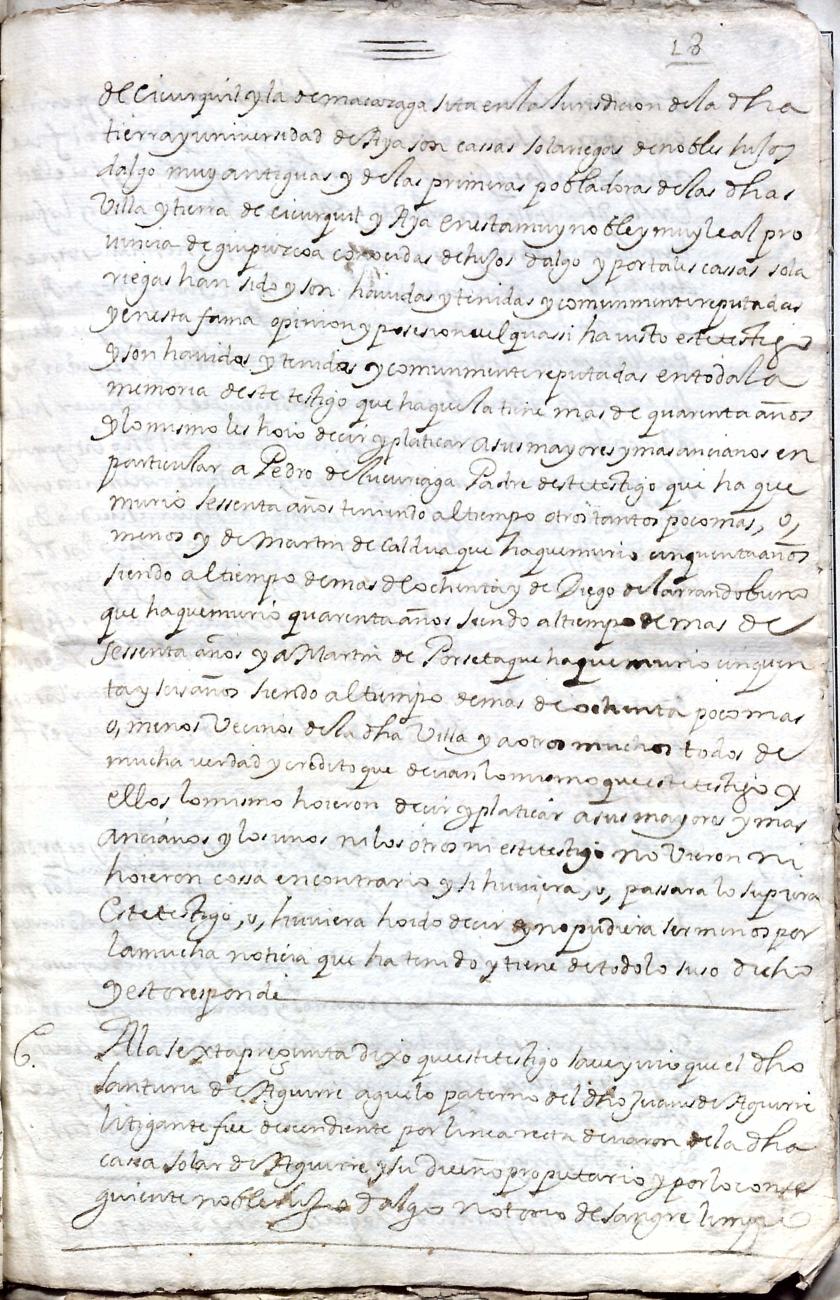 18
de Cicurquil y la de macazaga sita en la Jurisdicion de la dha
tierra y universidad de Aya son cassas solariegas de nobles hijos
dalgo muy antiguas y de las primeras pobladoras de las dhas
Villa y tierra de cicurquil y Aya en esta muy noble y muy leal pro
vincia de guipuzcoa conocidas de hijos dalgo y por tales cassas sola
riegas han sido y son havidas y tenidas y comunmente reputadas
y en esta fama opinion y posesion vel quassi ha visto este testigo
y son havidos y tenidas y comunmente reputadas en toda la
memoria deste testigo que ha que la tiene mas de quarenta años
y lo mismo les hoio decir y platicar a sus mayores y mas ancianos en
particular a Pedro de Padre deste testigo que ha que
murio sessenta años teniendo al tiempo otros tantos poco mas, o,
menos y de Martin de caldua que ha que murio cinquenta años
siendo al tiempo de mas de ochenta y de Diego de larrandoburo
que ha que murio quarenta años siendo al tiempo de mas de
sessenta años y a Martin de Porseta que ha que murio cinquen
ta y seis años siendo al tiempo de mas de ochenta poco mas
o, menos Vecinos de la dha Villa y a otros muchos todos de
mucha verdad y credito que decian lo mismo que este testigo y
ellos lo mismo hoieron decir y platicar a sus mayores y mas
ancianos y los unos ni los otros ni este testigo no Vieron ni
hoieron cossa en contrario y si huviera, o, passara lo supiera
Este testigo, o, huviera hoido decir y no pudiera ser menos por
la mucha noticia que ha tenido y tiene de todo lo suso dicho
y esto responde
6. A la sexta pregunta dixo que este testigo save y vio que el dho
santuru de Aguirre aguelo paterno del dho Juans de Aguirre
litigante fue descendiente por linea recta de varon de la dha
cassa solar de Aguirre y su dueño propietario y por lo conse
guiente noble hijo dalgo notorio de sangre limpia